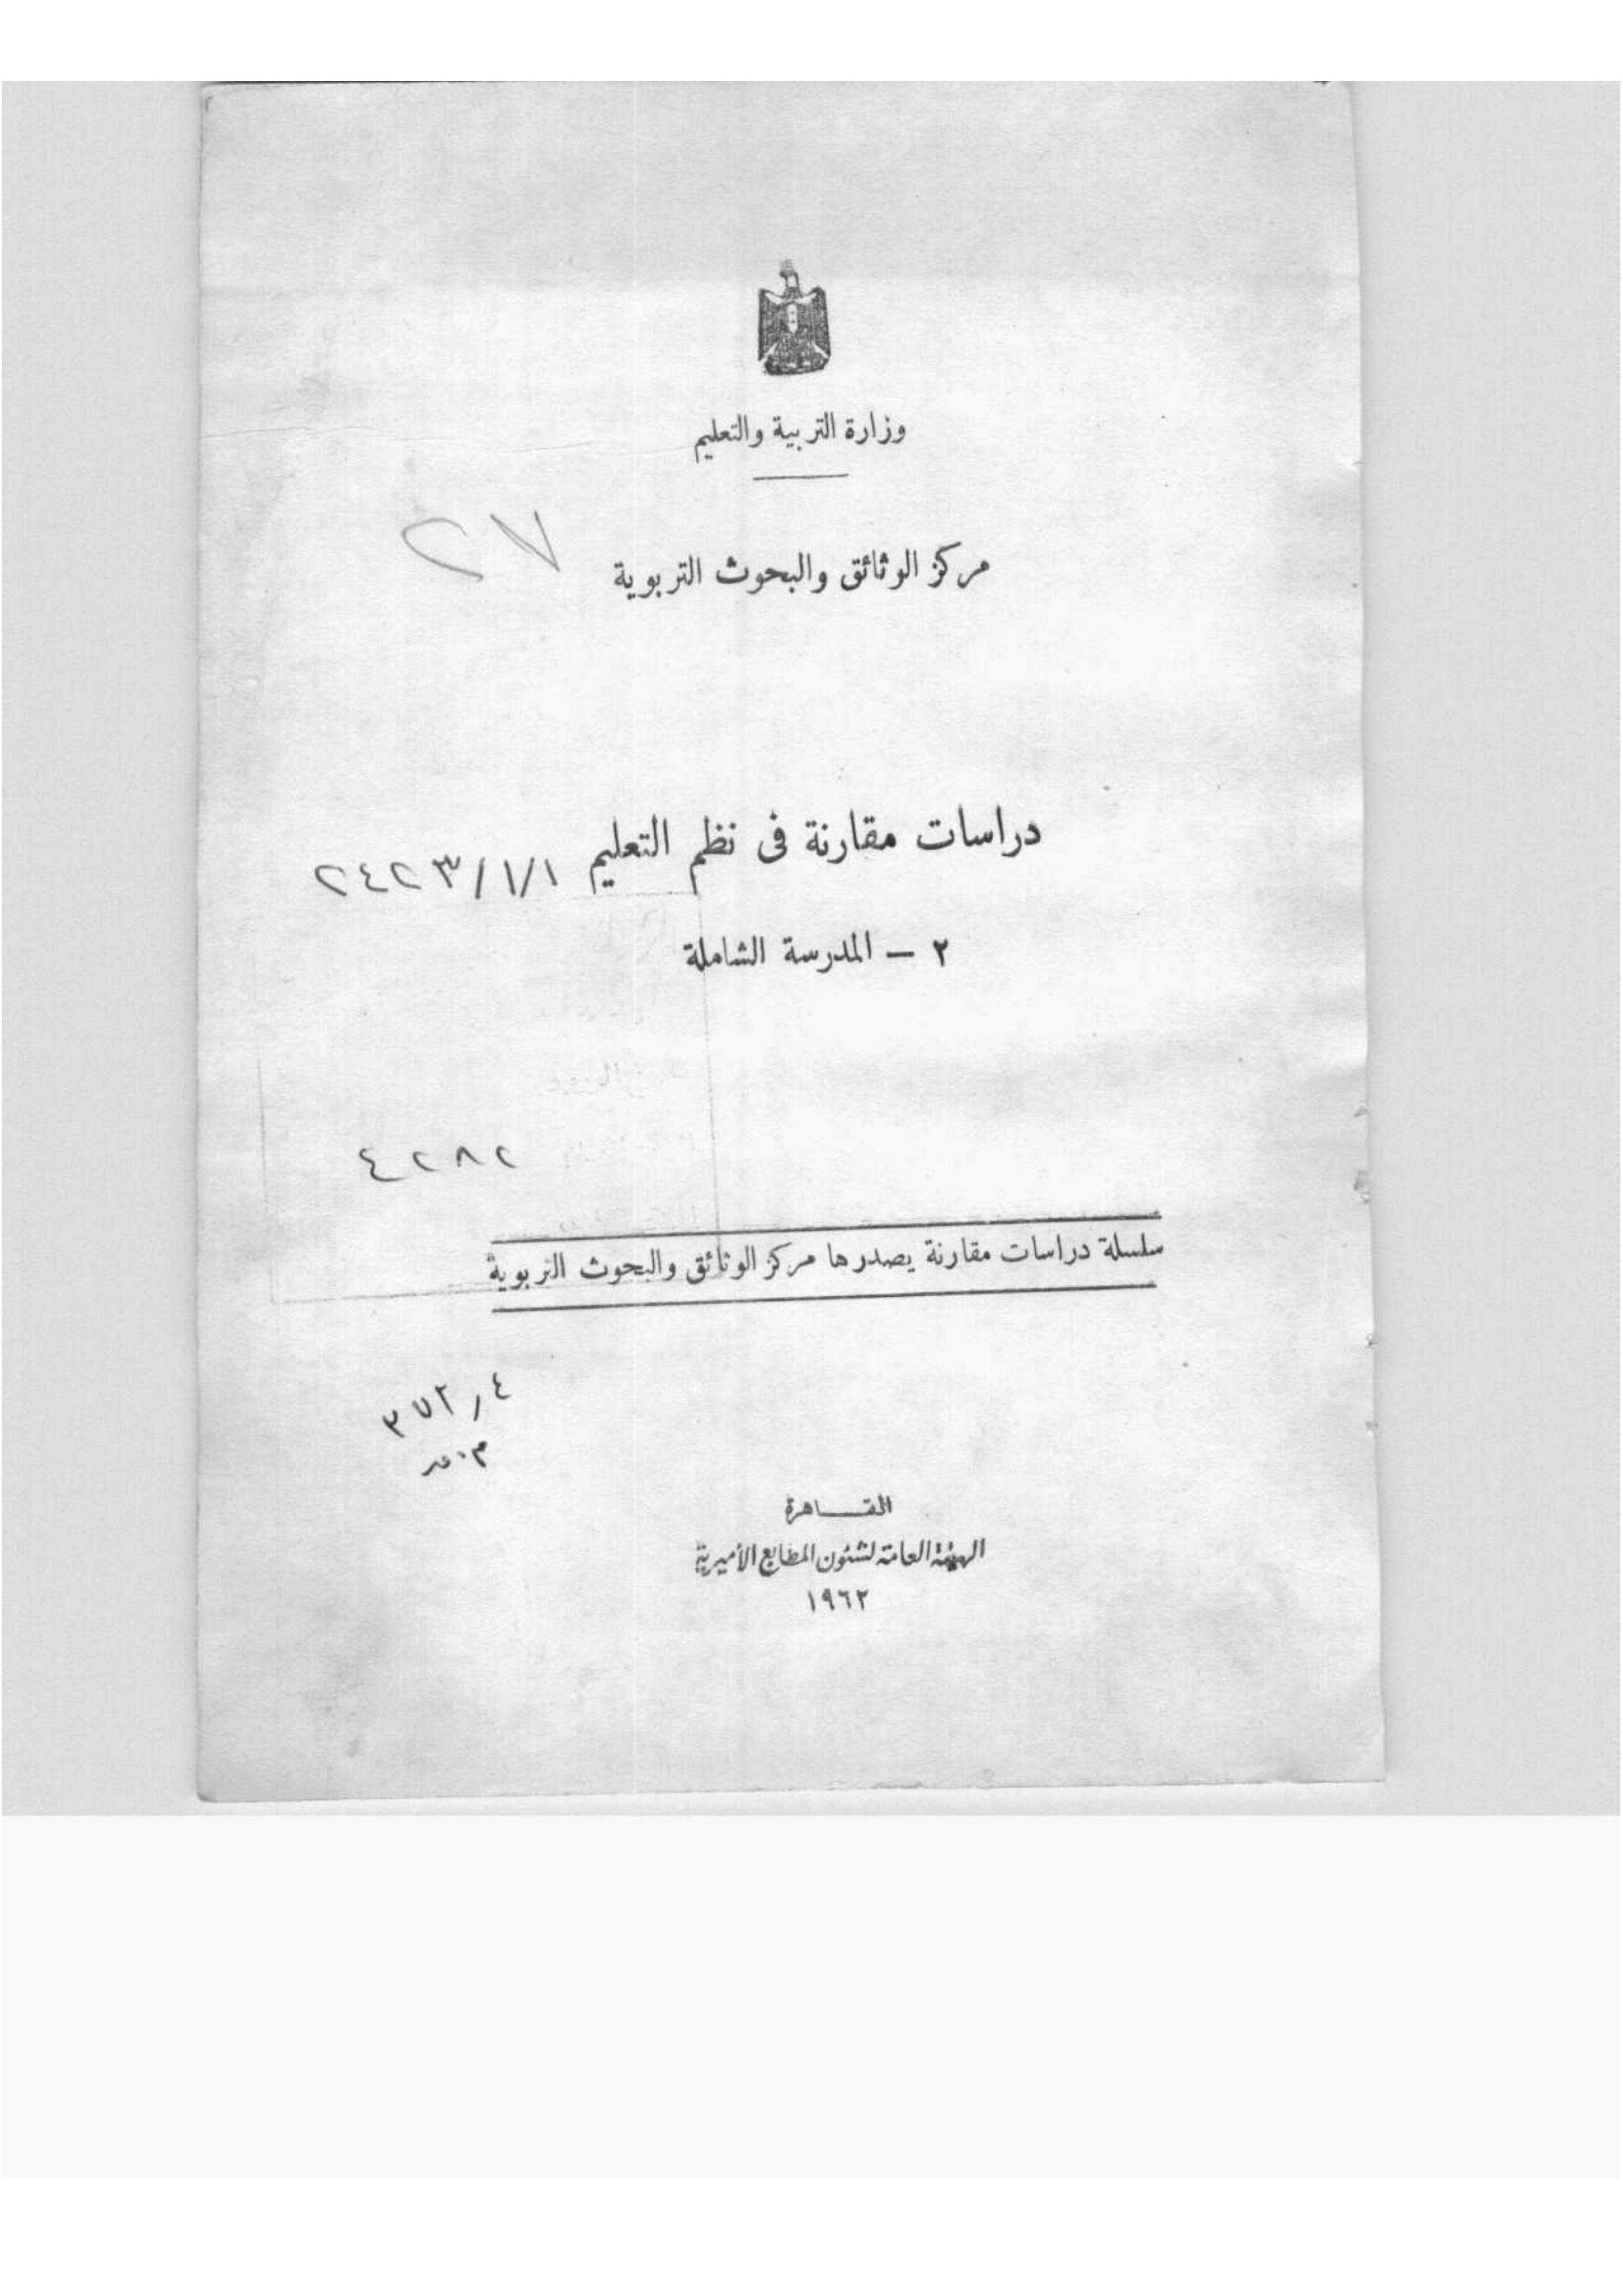 وزارة التربية والتعليم
٢٧
مركز الوثائق والبحوث التربوية
دراسات مقارنة فى نظم التعليم
٢٤٢٣/١/١
٢ – المدرسة الشاملة
٤٢٨٢
سلسلة دراسات مقارنة يصدرها مركز الوثائق والبحوث التربوية
٣٧٢,٤
القـــاهرة
الهيئة العامة لشئون المطابع الأميرية
١٩٦٢